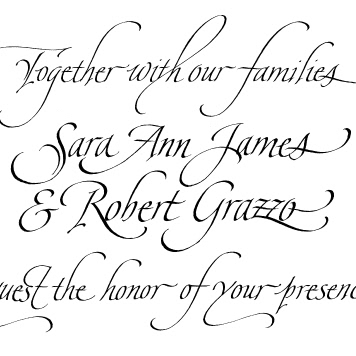 Together with our families
Sara Ann James
& Robert Grazzo
quest the honor of your presenc